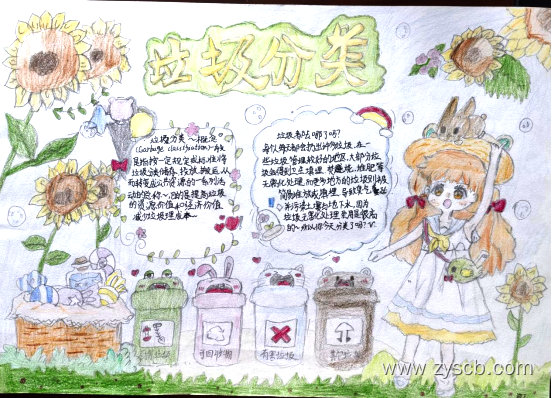 垃圾分类
垃圾分类~概念
(Garbage classification)一般
是指按一定规定或标准将
垃圾分类储存、投放、搬运,从
而转变成公共资源的一系列活
动的总称~。目的是提高垃圾
的资源价值和经济价值,
减少垃圾
垃圾都哪了吗?
每个人每天都会扔出许多垃圾,在一
些垃圾管理较好的地区,大部分垃
圾会得到卫生填埋、焚烧、堆肥等
无害化处理,而更多地方的垃圾则被
简易堆放或填埋,导致臭气
污染土壤与地下水,因为
垃圾无害化处理费用是很高
的~所以你今天分类了吗?
可回收物
有害垃圾
www.zyscb.com